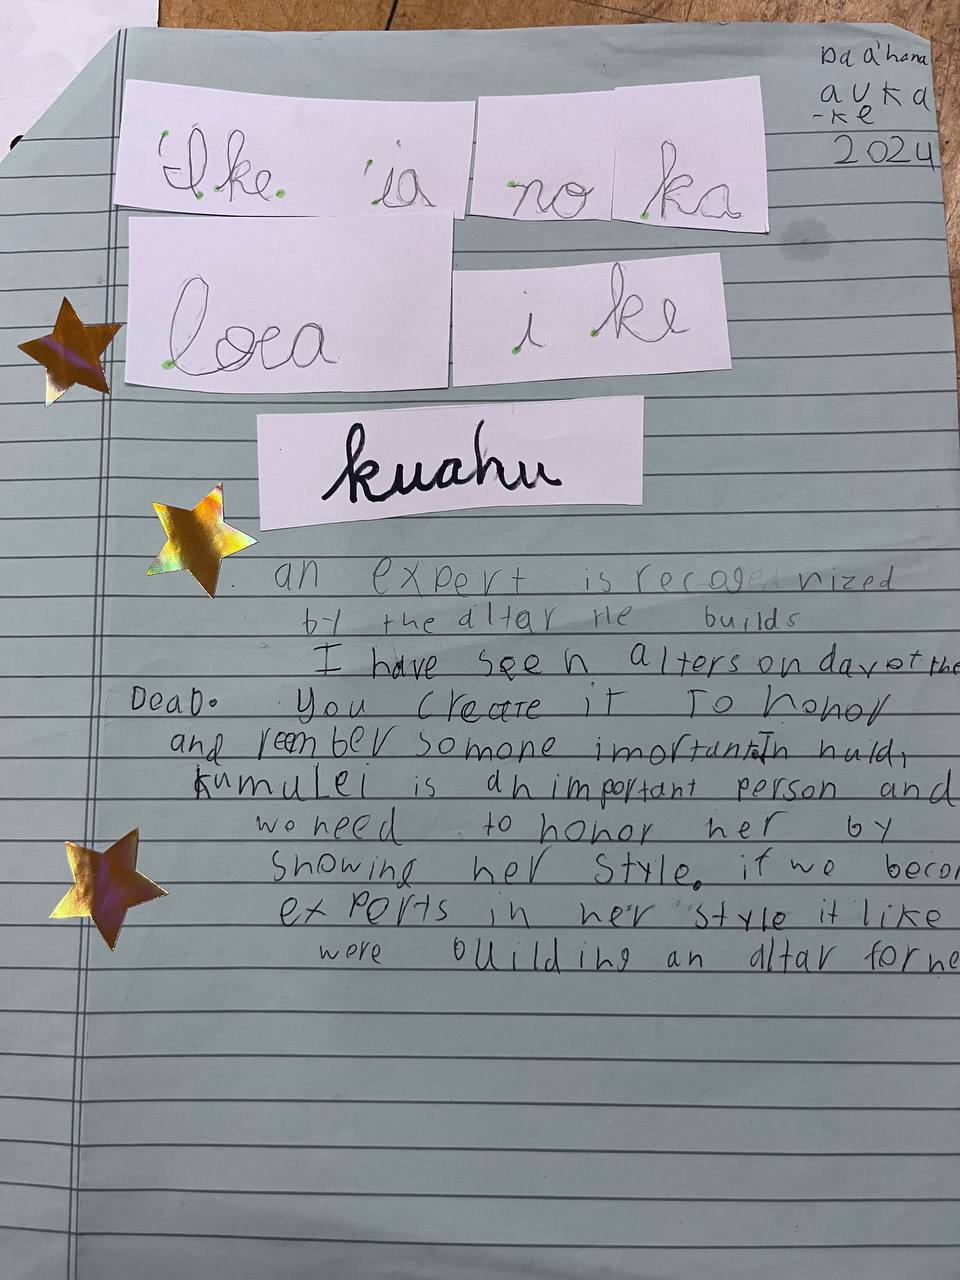 Pa a'hana
auka
-ke
2024
'Ike 'ia no ka
loea i ke
kuahu
an expert is recogenized
by the altar He builds
I have seen alters on day of the
Dead. You create it To honor
and reember somone imortant. In huld,
kumulei is an important person and
we need to honor her by
showing her style. if we becom
experts in her style it like
were building an altar for he